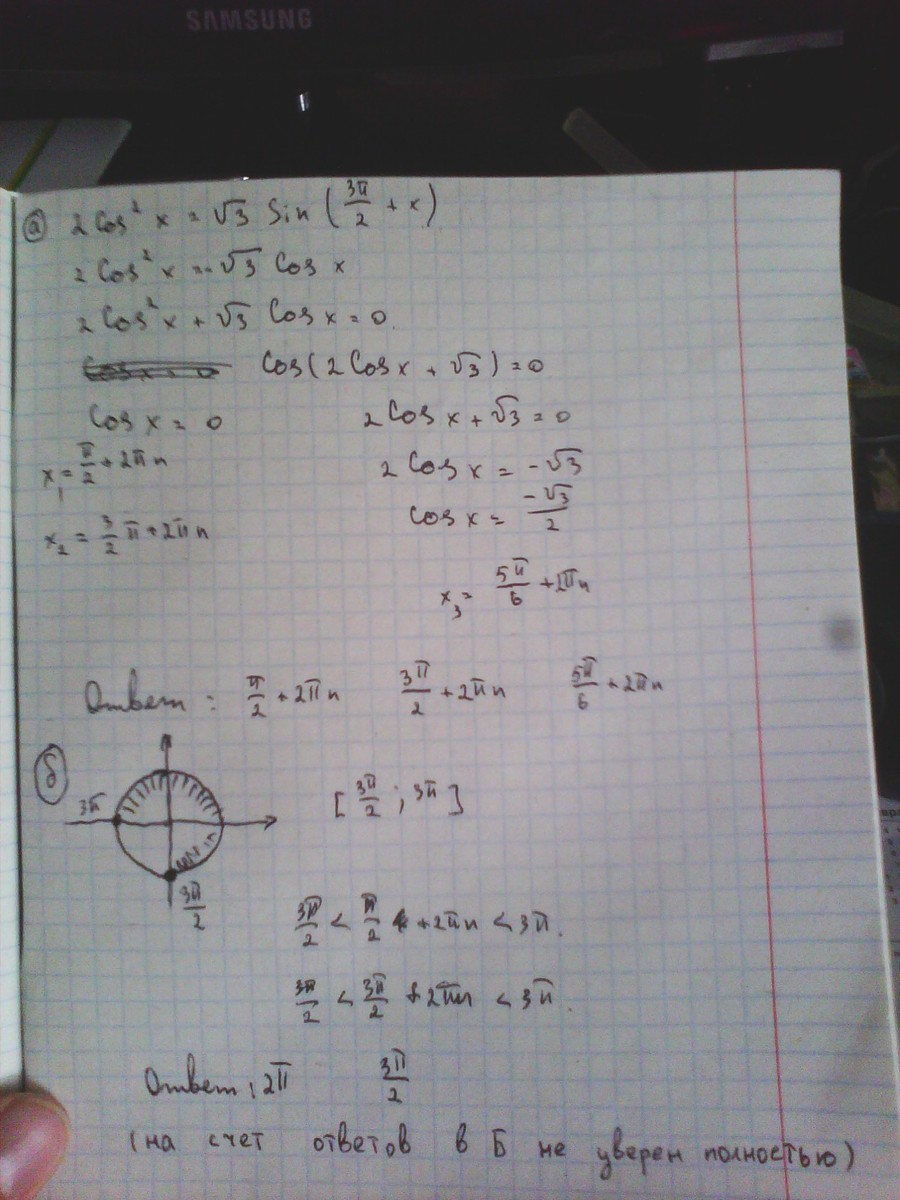 SAMSUNG
а) 2 Cos² x = √3 Sin (3π/2 + x)
2 Cos² x = -√3 Cos x
2 Cos² x + √3 Cos x = 0.
Cos(2 Cos x + √3) = 0
Cos x = 0 2 Cos x + √3 = 0
x₁ = π/2 + 2πn 2 Cos x = -√3
x₂ = 3/2 π + 2πn Cos x = -√3/2
x₃ = 5π/6 + 2πn
Ответ: π/2 + 2πn 3π/2 + 2πn 5π/6 + 2πn
б) 3π [3π/2 ; 3π]
3π/2
3π/2 < π/2 + 2πn < 3π.
3π/2 < 3π/2 + 2πn < 3π.
Ответ: 2π 3π/2
(на счет ответов в Б не уверен полностью)